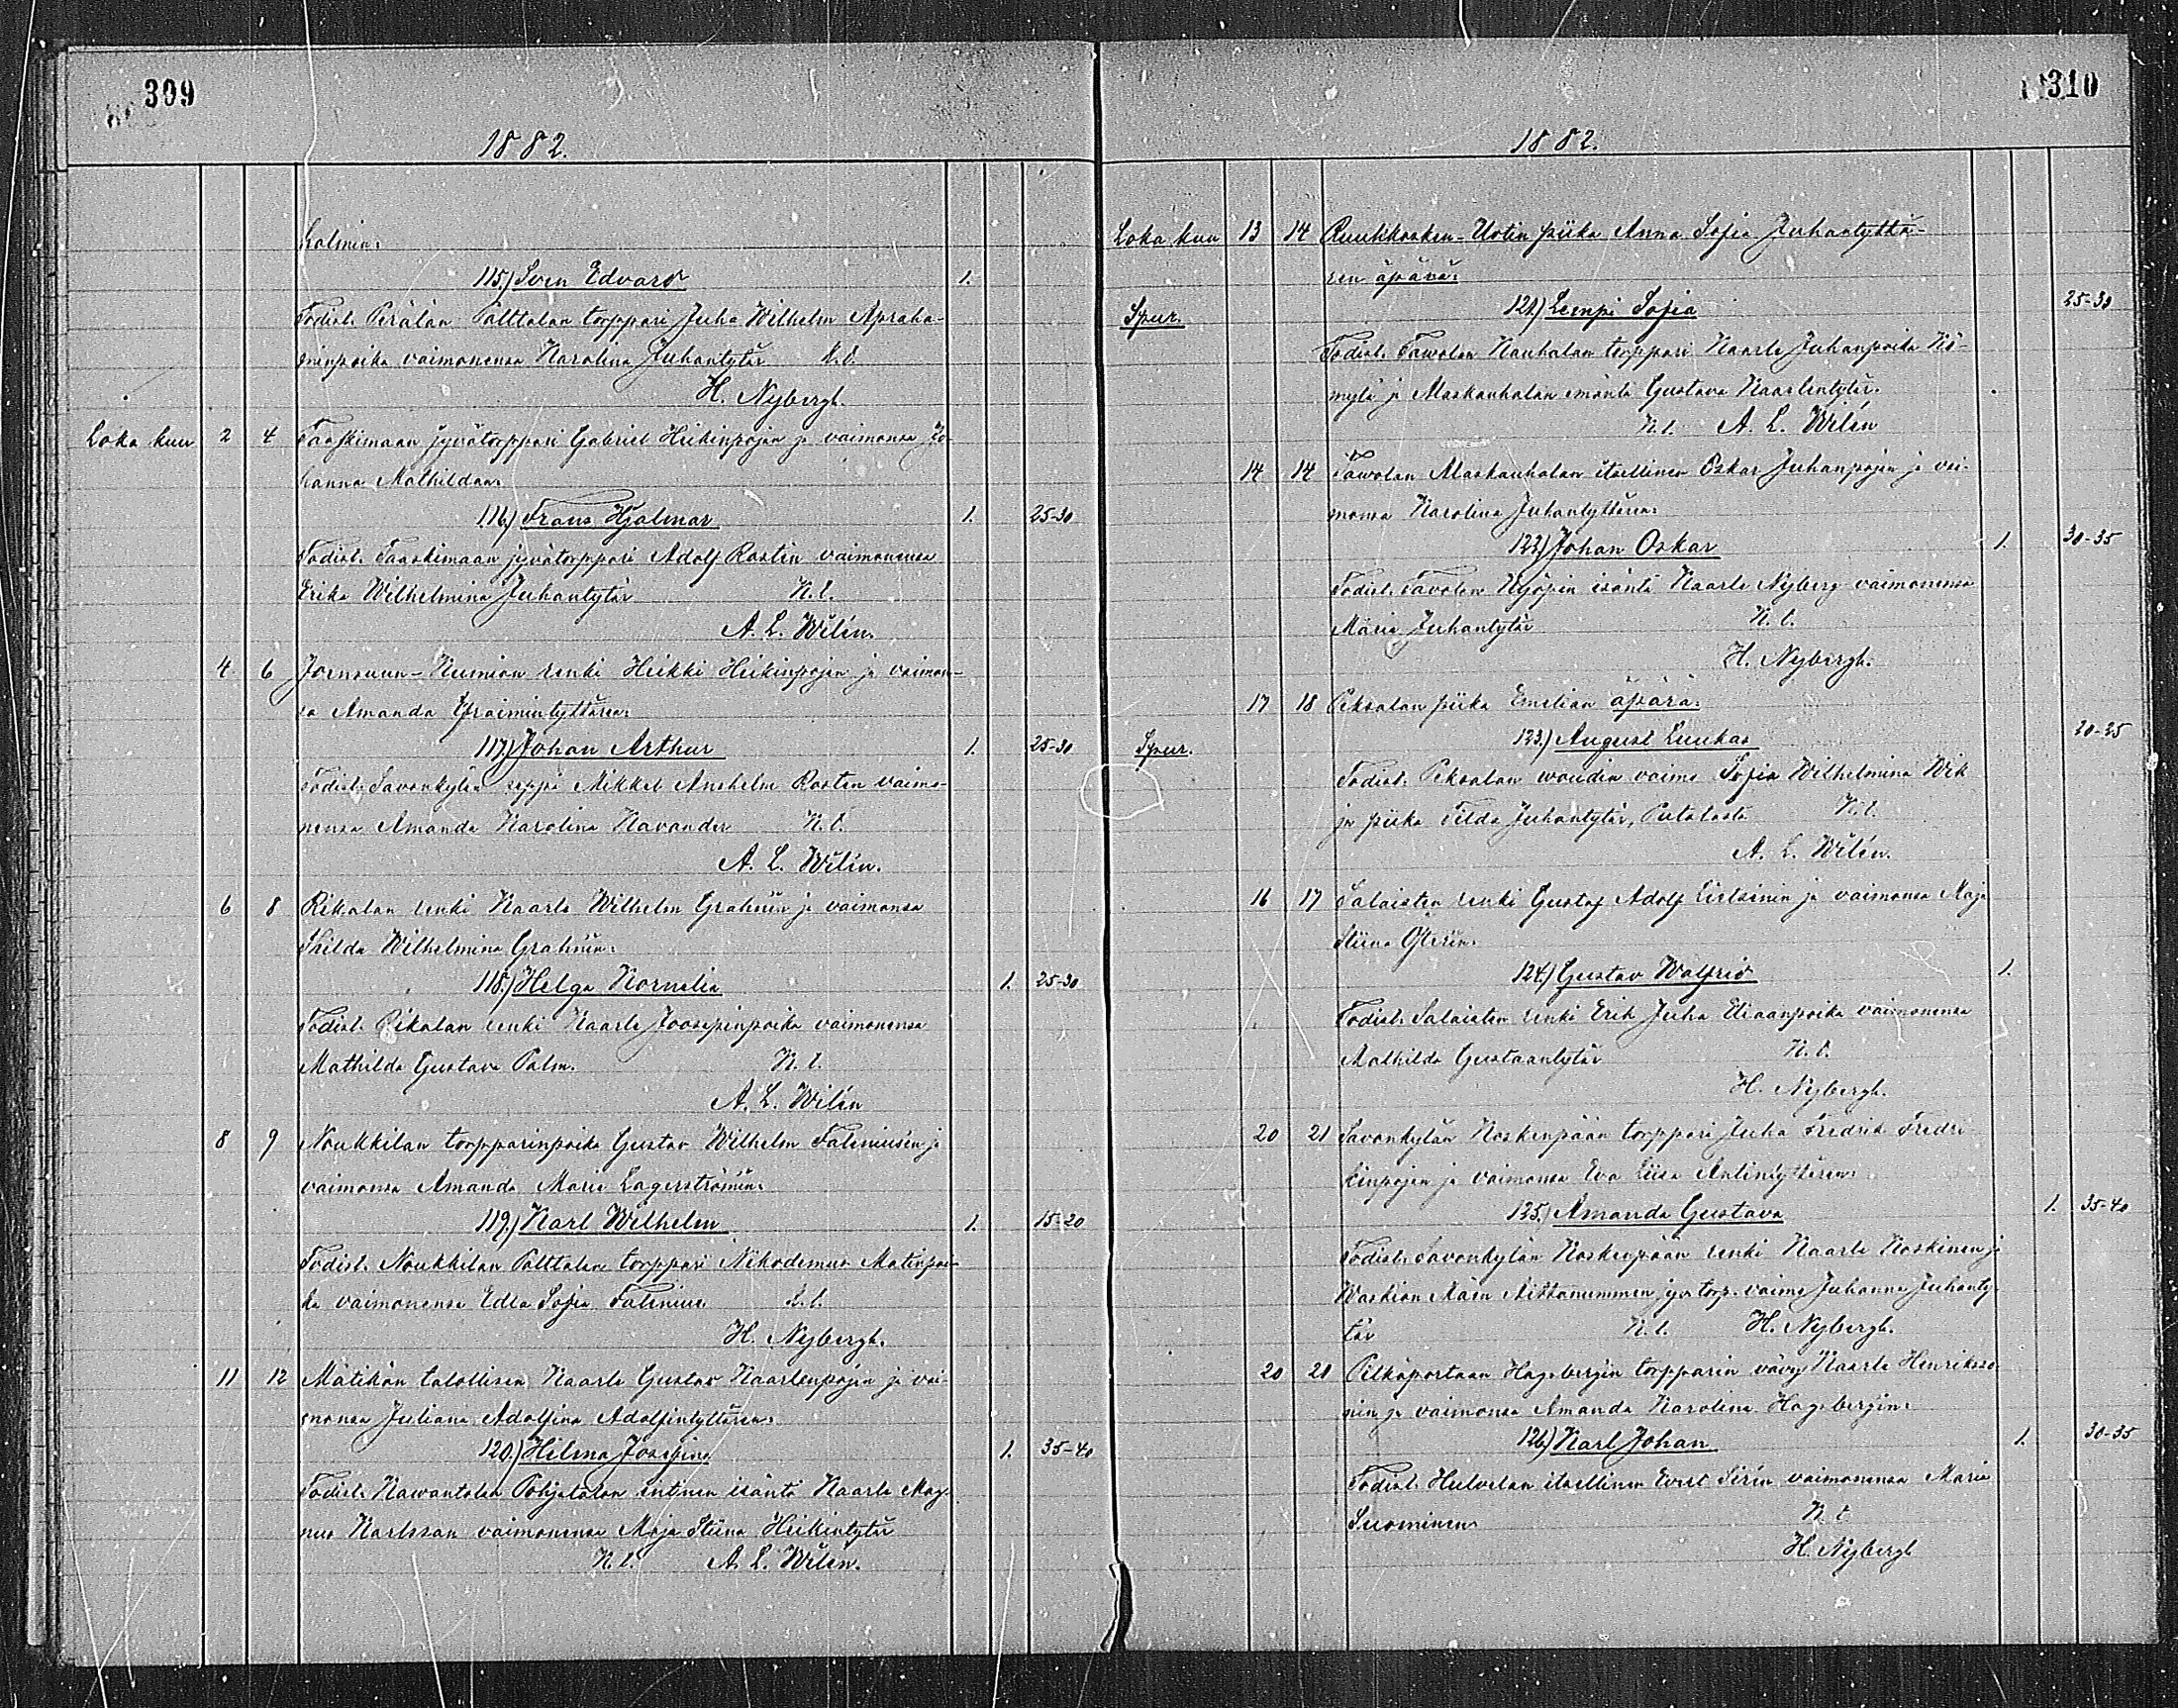 309
1882.
holmin:
115.) Sven Edvard 1.
Todist. Perälän Palttalan torppari Juha Wilhelm Apraha-
minpoika vaimonensa Karolina Juhantytär k.l.
H. Nybergh.
Loka kuu 2 4 Taaskimaan jyvätorppari Gabriel Heikinpojan ja vaimonsa Jo-
hanna Mathildan:
116.) Frans Hjalmar 1. 25-30
Todist. Taaskimaan jyvätorppari Adolf Rostin vaimonensa
Erika Wilhelmina Juhantytär K.l.
A. L. Wilén.
4 6 renki Heikki Heikinpojan ja vaimon-
sa Amanda Efraimintyttären:
117.) Johan Arthur 1. 25-30
Todist. Savonkylän seppä Mikkel Anshelm Rosten vaimo-
nensa Amanda Karolina Kavander K.l.
A. L. Wilén.
6 8 Rikalan renki Kaarle Wilhelm Grahnin ja vaimonsa
Thilda Wilhelmina Grahnin:
118.) Helga Kornelia 1. 25-30
Todist. Rikalan renki Kaarle Joosepinpoika vaimonensa
Mathilda Gustava Palm. K.l.
A. L. Wilén
8 9 Noukkilan torpparinpoika Gustav Wilhelm Faleniusen ja
vaimonsa Amanda Maria Lagerströmin:
119.) Karl Wilhelm 1. 15-20
Todist. Noukkilan Palttalan torppari Nikodemus Matinpoi-
ka vaimonensa Edla Sofia Falenius k.l.
H. Nybergh.
11 12 Mätikön talollisen Kaarle Gustav Kaarlenpojan ja vai-
monsa Juliana Adolfina Adolfintyttären:
120.) Hilma Josefina 1. 35-40
Todist. Kawantolan Pohjatalon entinen isäntä Kaarle Mag-
nus Karlsson vaimonensa Maja Stiina Heikintytär
K.l. A. L. Wilén.
310
1882.
Loka kuu 13 14 Ruuhikosken-Uotin piika Anna Sofia Juhantyttä-
ren äpärä:
Spur. 121.) Lempi Sofia 25-30
Todist. Tawolan Kauhalan torppari Kaarle Juhanpoika
ja Maskauhalan emäntä Gustava Kaarlentytär.
K.l. A. L. Wilén
14 14 Tawolan Maskauhalan itsellinen Oskar Juhanpojan ja vai-
monsa Karolina Juhantyttären:
122.) Johan Oskar 1. 30-35
Todist. Tavolan Kjöpin isäntä Kaarle Nyberg vaimonensa
Maria Juhantytär K.l.
H. Nybergh.
17 18 Peksalan piika Emelian äpärä:
Spur. 123.) August Luukas 20-25
Todist. Peksalan woudin vaimo Sofia Wilhelmina Wik
ja piika Tilda Juhantytär, K.l.
A. L. Wilén.
16 17 Salaisten renki Gustaf Adolf ja vaimonsa Maja
Stiina
124.) Gustav Walfrid 1.
Todist. Salaisten renki Erik Juha Eliaanpoika vaimonensa
Mathilda Gustaantytär K.l.
H. Nybergh.
20 21 Savonkylän Koskenpään torppari Juha Fredrik Fredri-
kinpojan ja vaimonsa Eva Liisa Antintyttären:
125.) Amanda Gustava 1. 35-40
Todist. Savonkylän Koskenpään renki Kaarle Koskinen ja
jyv. torp. vaimo Juhanna Juhanty-
tär K.l. H. Nybergh.
20 21 Pitkäportaan Hagsbergin torpparin vävy Kaarle Henriksso-
nin ja vaimonsa Amanda Karolina Hagsbergin:
126.) Karl Johan 1. 30-35
Todist. Hulvelan itsellinen Evert Sirén vaimonensa Maria
Suominen K.l.
H. Nybergh